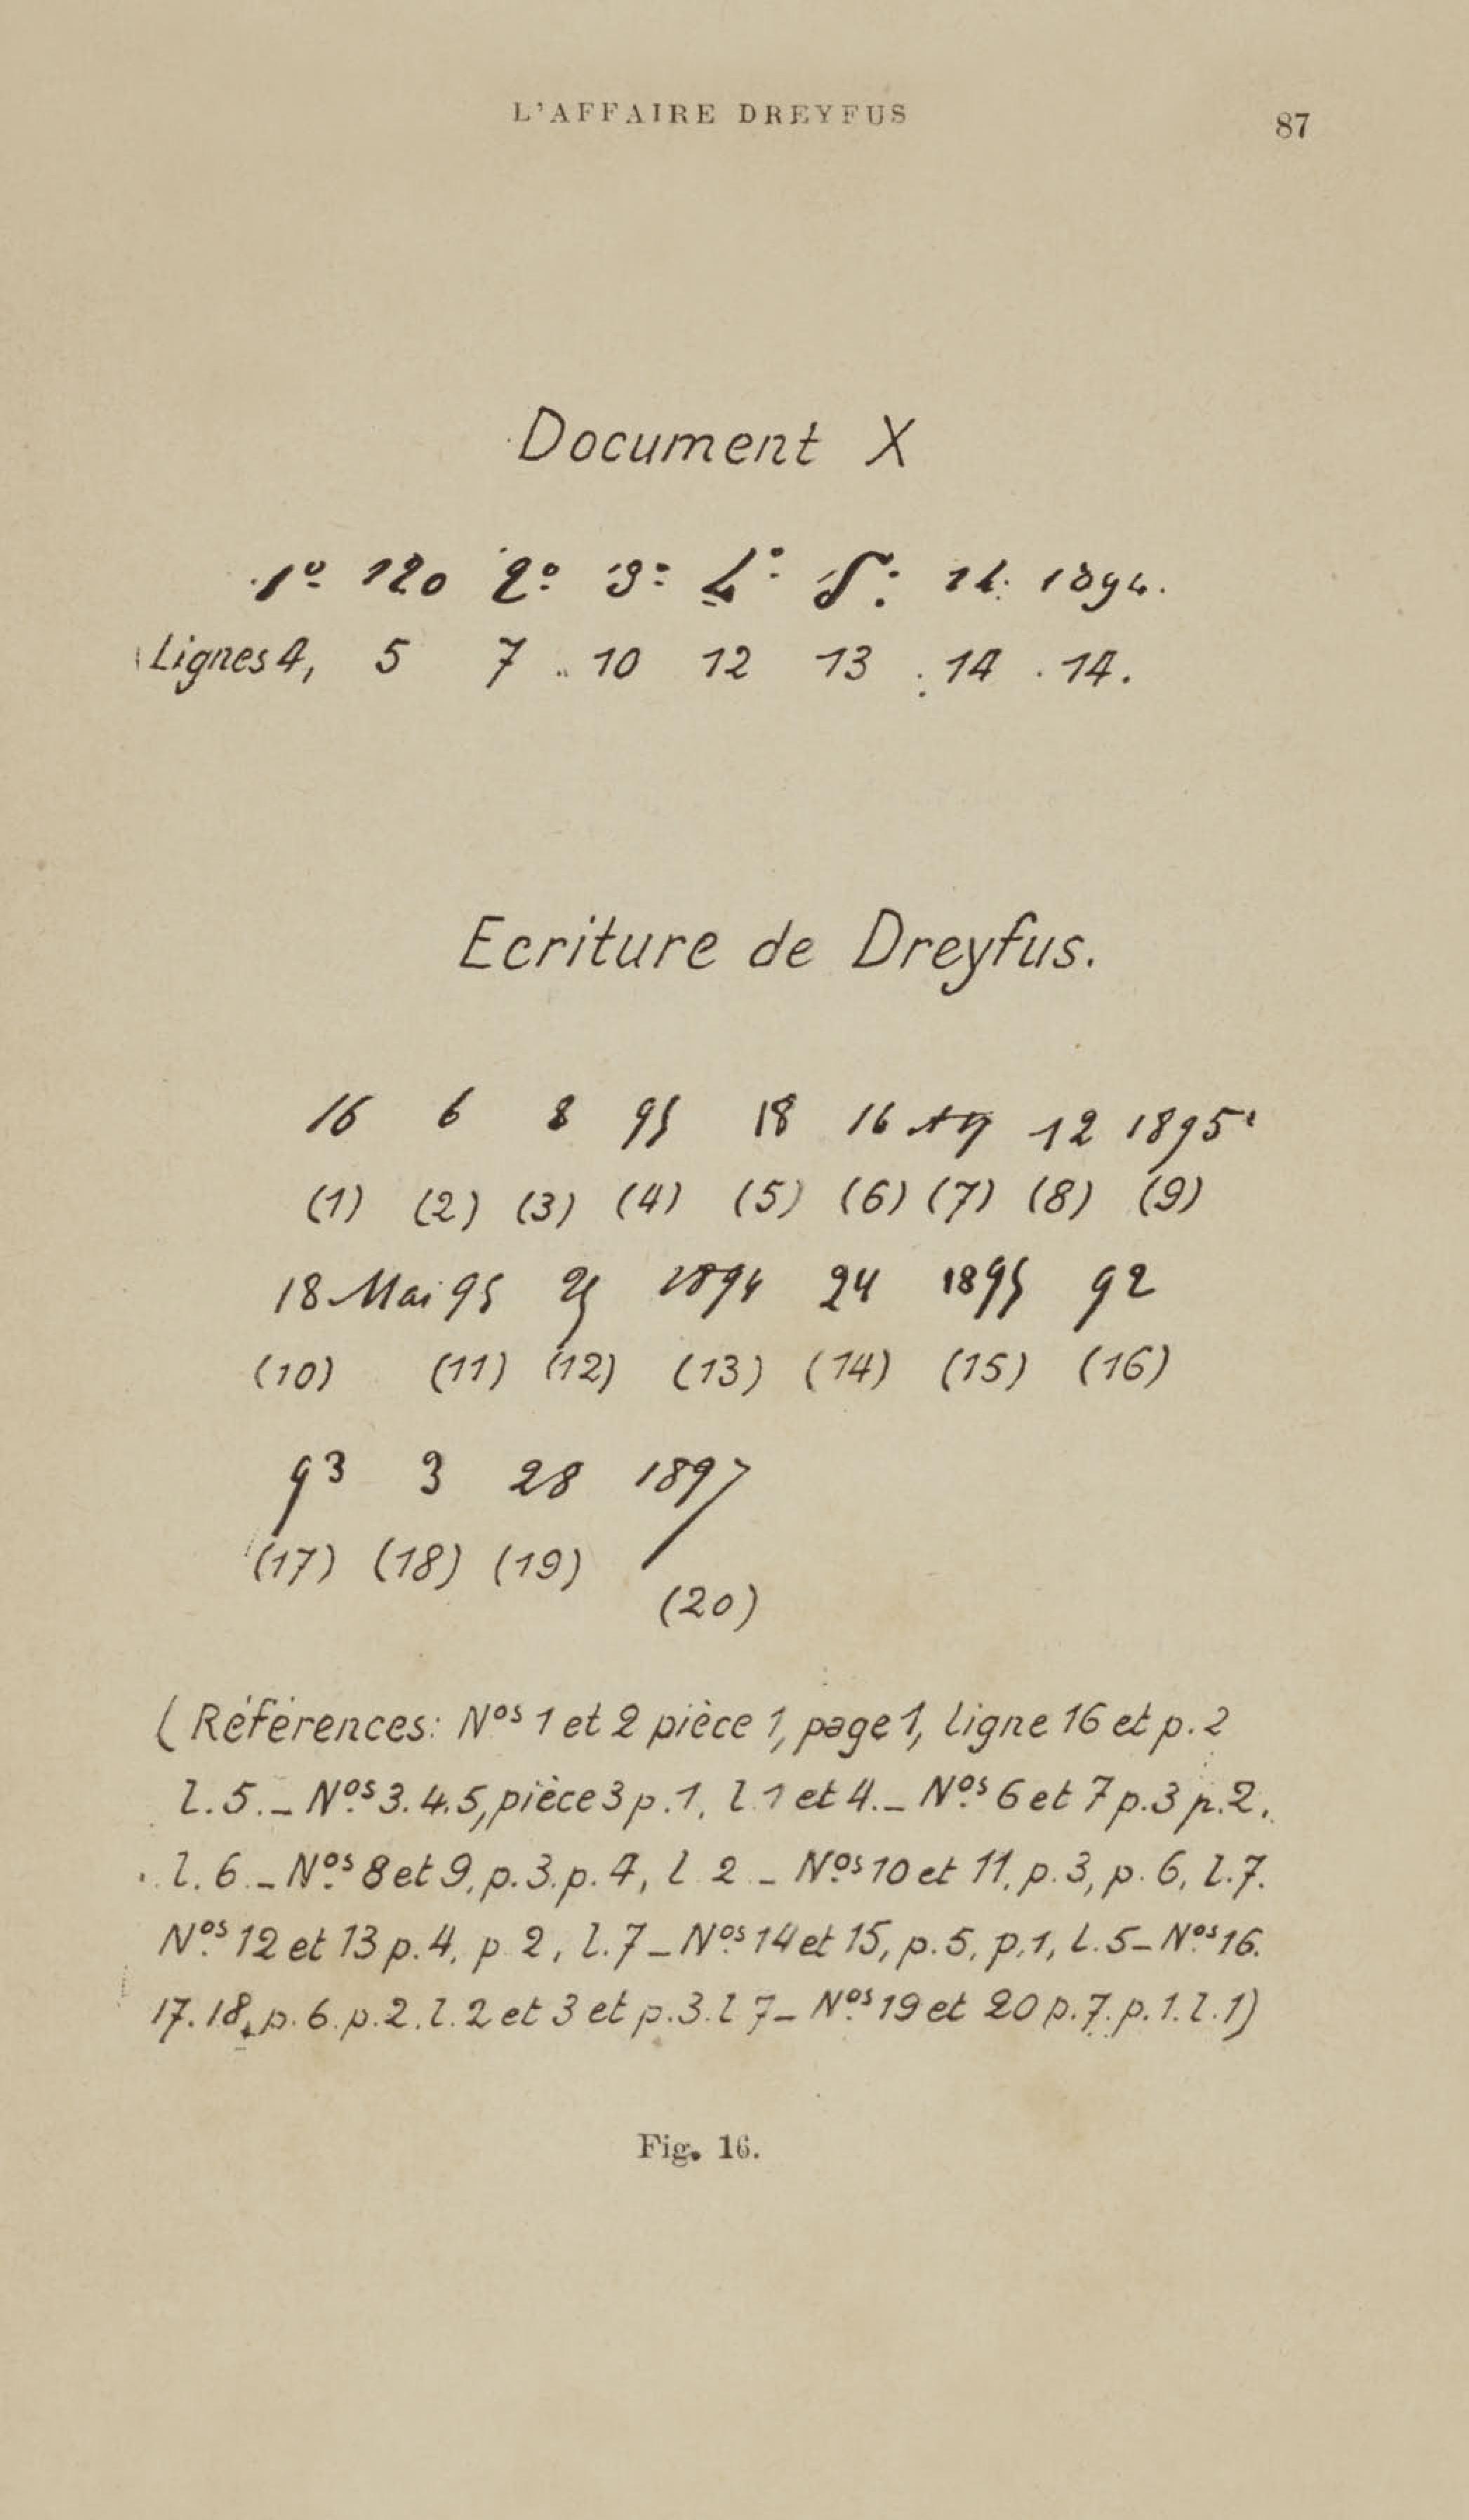 L'AFFAIRE DREYFUS
87
Document X
1º 120 2º 3º 4º 5º 14 1894.
Lignes 4, 5 7 10 12 13 14 14.
Ecriture de Dreyfus.
16 6 8 95 18 16 12 1895
(1) (2) (3) (4) (5) (6) (7) (8) (9)
18 Mai 95 25 1894 24 1895 92
(10) (11) (12) (13) (14) (15) (16)
93 3 28 1897
(17) (18) (19)
(20)
(Références: Nos 1 et 2 pièce 1, page 1, ligne 16 et p. 2
l. 5. _ Nos 3. 4. 5, pièce 3 p. 1, l. 1 et 4. _ Nos 6 et 7 p. 3 p. 2,
l. 6 _ Nos 8 et 9, p. 3. p. 4, l 2 _ Nos 10 et 11, p. 3, p. 6, l. 7.
Nos 12 et 13 p. 4, p 2, l. 7 _ Nos 14 et 15, p. 5, p. 1, l. 5 _ Nos 16.
17. 18, p. 6. p. 2. l. 2 et 3 et p. 3. l 7 _ Nos 19 et 20 p. 7. p. 1. l. 1)
Fig. 16.